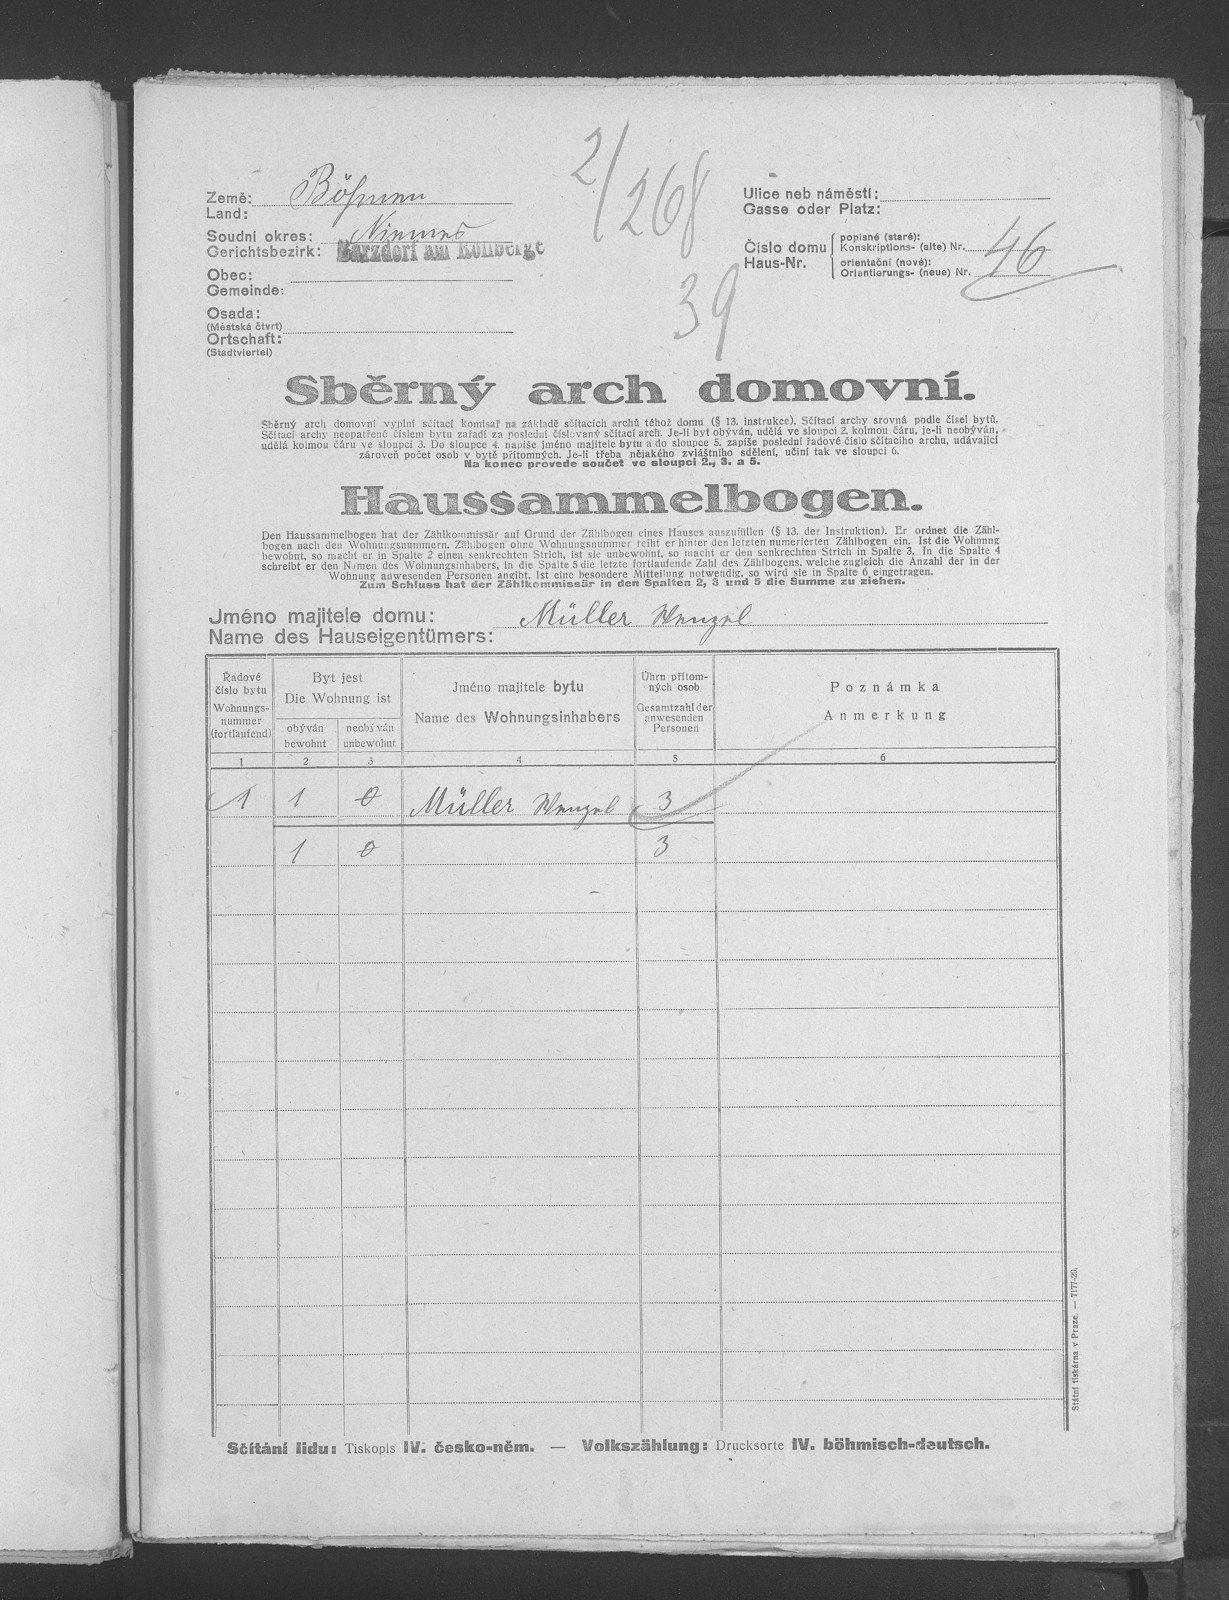 2/268
39
Země: Böhmen
Land:
Soudní okres: Niemes
Gerichtsbezirk: Barzdorf am Rollberge
Obec:
Gemeinde:
Osada:
(Městská čtvrt)
Ortschaft:
(Stadtviertel)
Ulice neb náměstí:
Gasse oder Platz:
Číslo domu popisné (staré):
Konskriptions- (alte) Nr. 46
Haus-Nr. orientační (nové):
Orientierungs- (neue) Nr.
Sběrný arch domovní.
Sběrný arch domovní vyplní sčítací komisař na základě sčítacích archů téhož domu (§ 13. instrukce). Sčítací archy srovná podle čísel bytů.
Sčítací archy neopatřené číslem bytu zařadí za poslední číslovaný sčítací arch. Je-li byt obýván, udělá ve sloupci 2. kolmou čáru, je-li neobýván,
udělá kolmou čáru ve sloupci 3. Do sloupce 4. napíše jméno majitele bytu a do sloupce 5. zapíše poslední řadové číslo sčítacího archu, udávající
zároveň počet osob v bytě přítomných. Je-li třeba nějakého zvláštního sdělení, učiní tak ve sloupci 6.
Na konec provede součet ve sloupci 2., 3. a 5.
Haussammelbogen.
Den Haussammelbogen hat der Zählkommissär auf Grund der Zählbogen eines Hauses auszufüllen (§ 13. der Instruktion). Er ordnet die Zähl-
bogen nach den Wohnungsnummern. Zählbogen ohne Wohnungsnummer reiht er hinter den letzten numerierten Zählbogen ein. Ist die Wohnnng
bewohnt, so macht er in Spalte 2 einen senkrechten Strich, ist sie unbewohnt, so macht er den senkrechten Strich in Spalte 3. In die Spalte 4
schreibt er den Namen des Wohnungsinhabers, in die Spalte 5 die letzte fortlaufende Zahl des Zählbogens, welche zugleich die Anzahl der in der
Wohnung anwesenden Personen angibt. Ist eine besondere Mitteilung notwendig, so wird sie in Spalte 6 eingetragen.
Zum Schluss hat der Zählkommissär in den Spalten 2, 3 und 5 die Summe zu ziehen.
Jméno majitele domu: Müller Wenzel
Name des Hauseigentümers:
Řadové
číslo bytu
Wohnungs-
nummer
(fortlaufend)
Byt jest
Die Wohnung ist
obýván
bewohnt
neobýván
unbewohnt
Jméno majitele bytu
Name des Wohnungsinhabers
Úhrn přítom-
ných osob
Gesamtzahl der
anwesenden
Personen
Poznámka
Anmerkung
1 2 3 4 5 6
1 1 0 Müller Wenzel 3
1 0 3
Sčítání lidu: Tiskopis IV. česko-něm. — Volkszählung: Drucksorte IV. böhmisch-deutsch.
Státní tiskárna v Praze. — 7177-20.